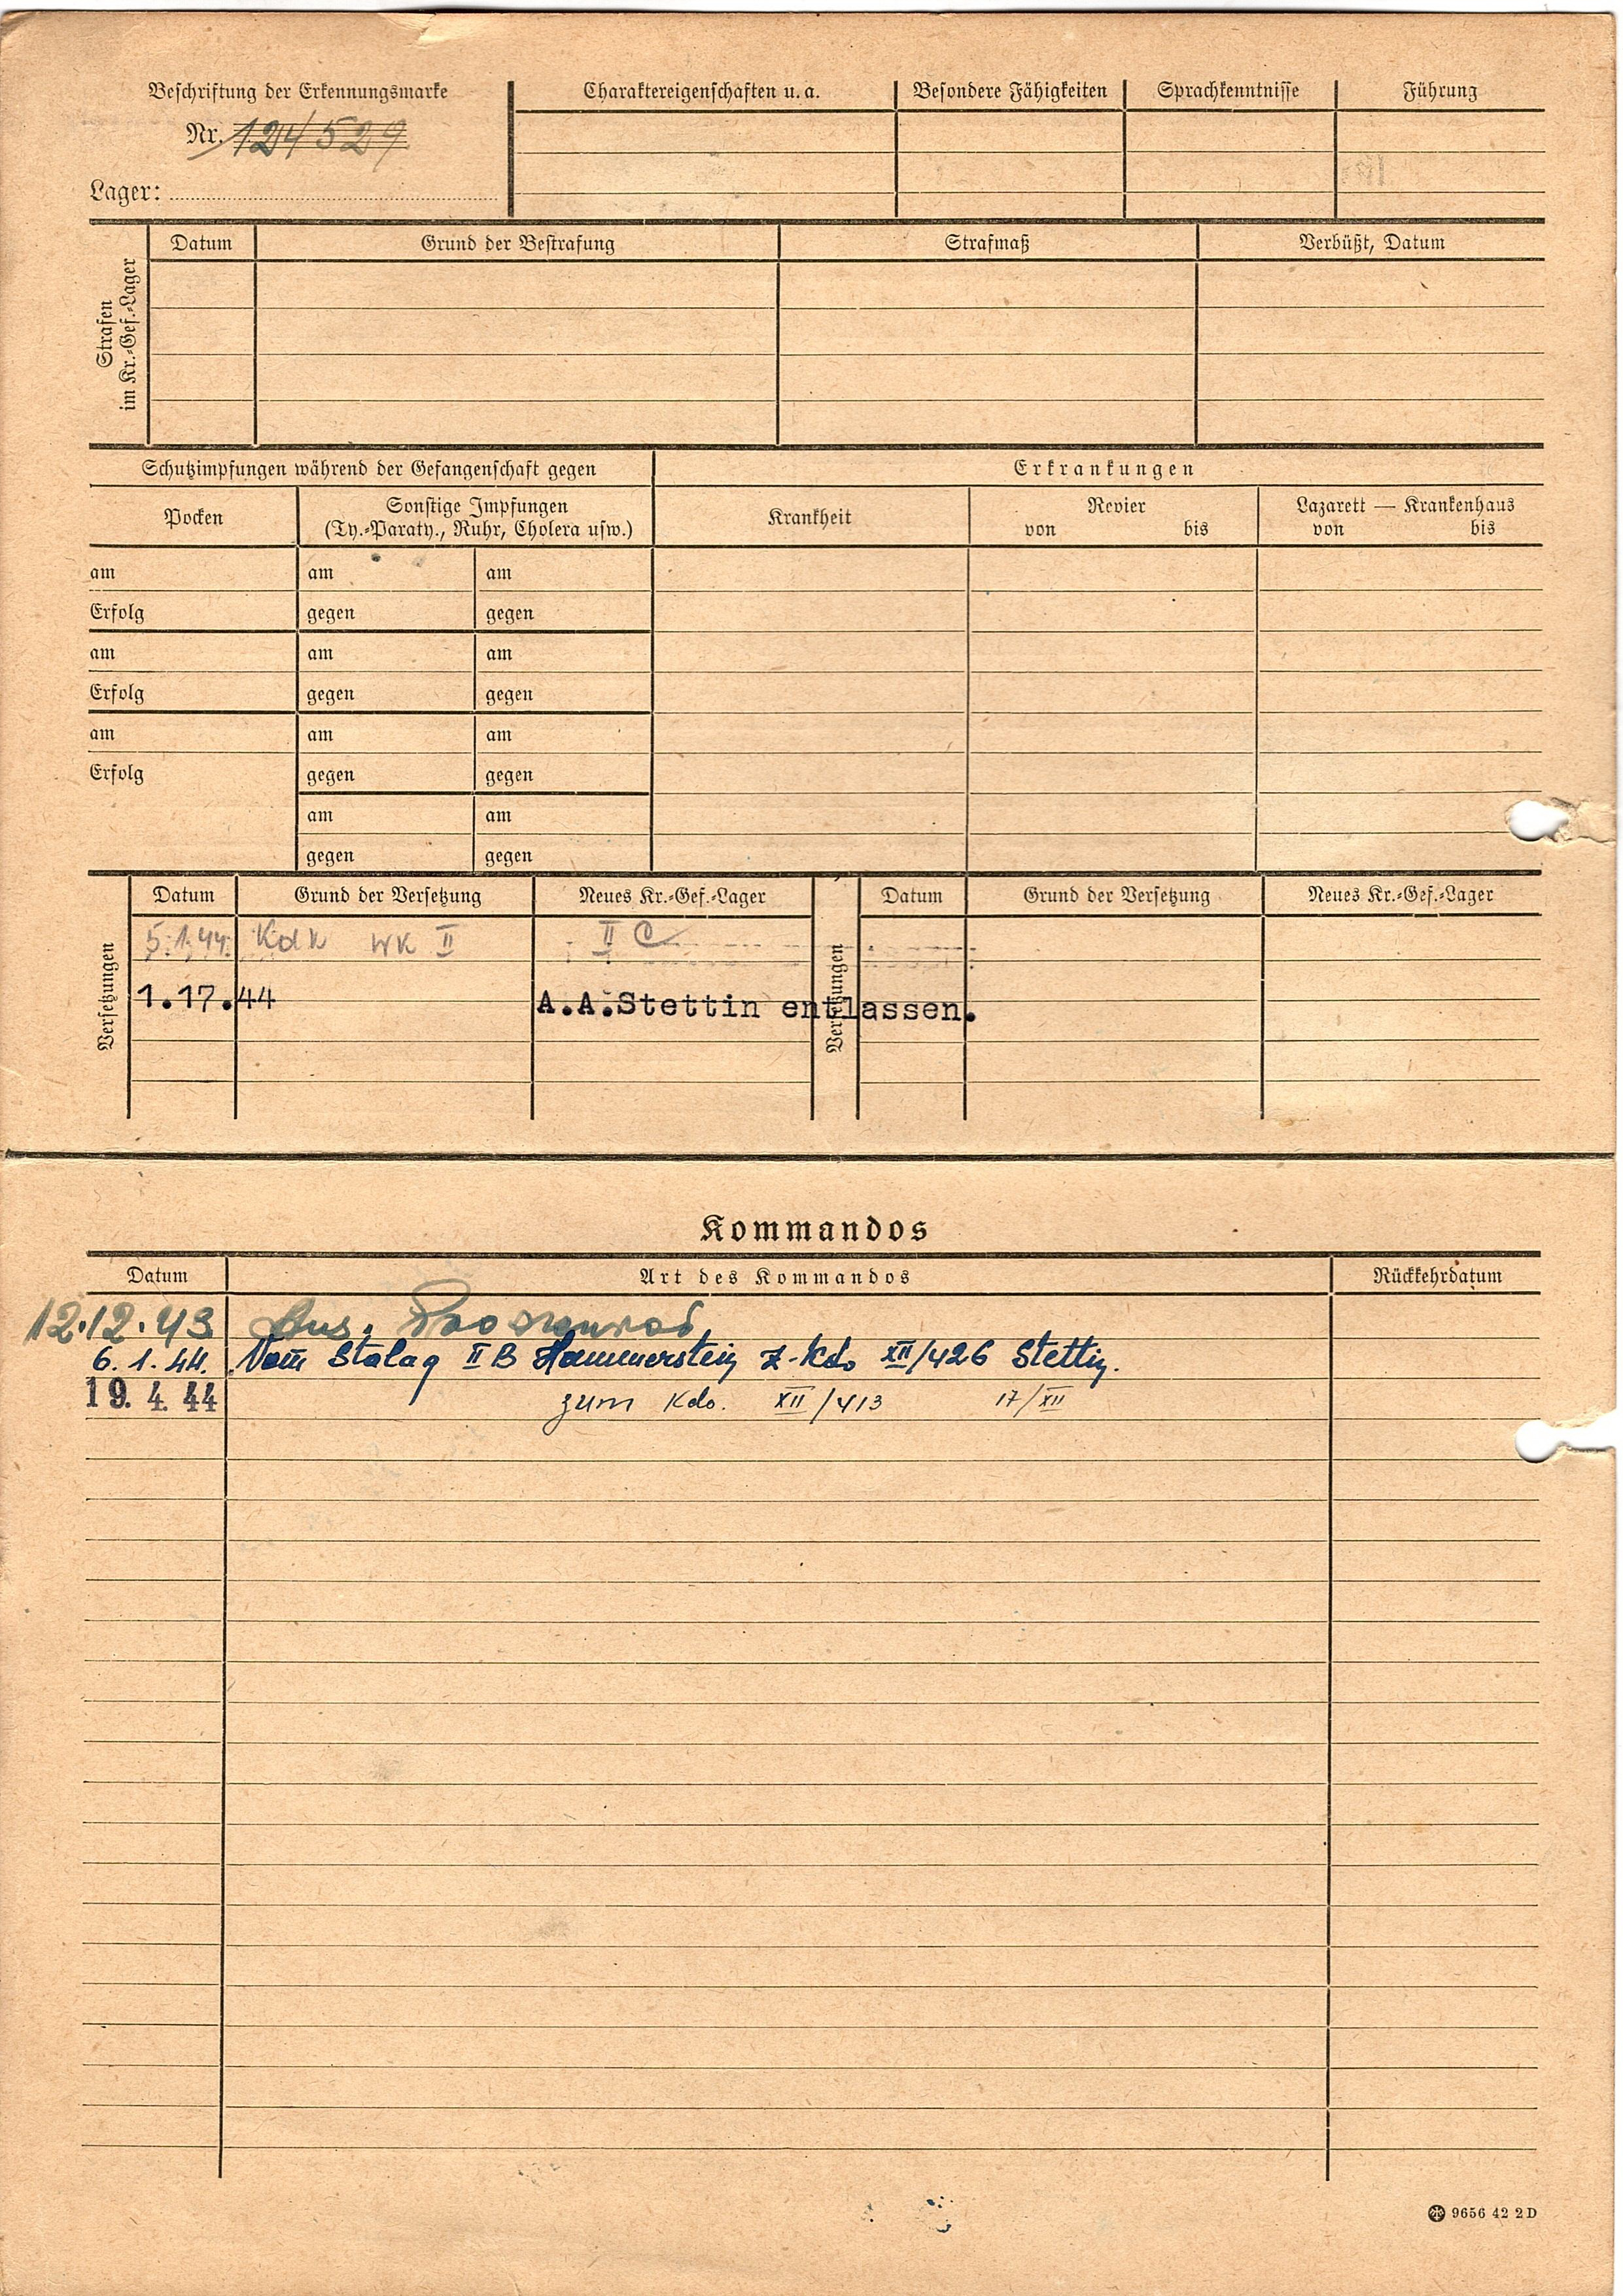 Beschriftung der Erkennungsmarke
Nr. 124529
Lager:
Charaktereigenschaften u. a.
Besondere Fähigkeiten
Sprachkenntnisse
Führung
Strafen
im Kr.-Gef.-Lager
Datum
Grund der Bestrafung
Strafmaß
Verbüßt, Datum
Schutzimpfungen während der Gefangenschaft gegen
Erkrankungen
Pocken
Sonstige Impfungen
(Ty.-Paraty., Ruhr, Cholera usw.)
Krankheit
Revier
von bis
Lazarett — Krankenhaus
von bis
am am am
Erfolg gegen gegen
am am am
Erfolg gegen gegen
am am am
Erfolg gegen gegen
am am
gegen gegen
Versetzungen
Datum Grund der Versetzung Neues Kr.-Gef.-Lager
Versetzungen
Datum Grund der Versetzung Neues Kr.-Gef.-Lager
5.1.44. KdK WK II II C
1.17.44 A.A.Stettin entlassen.
Kommandos
Datum Art des Kommandos Rückkehrdatum
12.12.43
6. 1. 44. Vom Stalag II B Hammerstein Z-Kdo XII/426 Stettin.
19. 4. 44 zum Kdo. XII/413 17/XII
9656 42 2 D